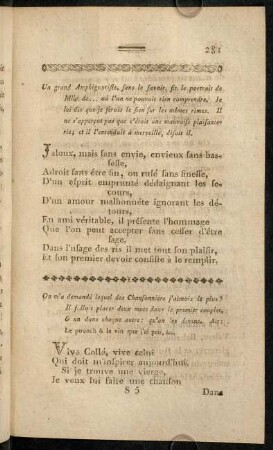 281
Un grand Amphigouriste, sans le savoir, fit le portrait de
Mlle de... où l'on ne pouvoit rien comprendre. Je
lui dis que je ferois le sien sur les mêmes rimes. Il
ne s'apperçut pas que c'étoit une mauvaise plaisanterie;
et il l'entendoit à merveille, disoit il.
Jaloux, mais sans envie, envieux sans bas-
sesse,
Adroit sans être fin, ou rusé sans finesse,
D'un esprit emprunté dédaignant les se-
cours,
D'un amour malhonnête ignorant les dé-
tours,
En ami véritable, il présente l'hommage
Que l'on peut accepter sans cesser d'être
sage.
Dans l'usage des ris il met tout son plaisir,
Et son premier devoir consiste à le remplir.
On m'a demandé lequel des Chansonniers j'aimois le plus?
Il falloit placer deux mots dans le premier couplet,
& un dans chaque autre: qu'on les devine. Air:
Le pounch & le vin que j'ai pris, &c.
Viva Collé, vive celui
Qui doit m'inspirer aujourd'hui.
Si je trouve une vierge,
Je veux lui faite une chanson
S 5 Dans